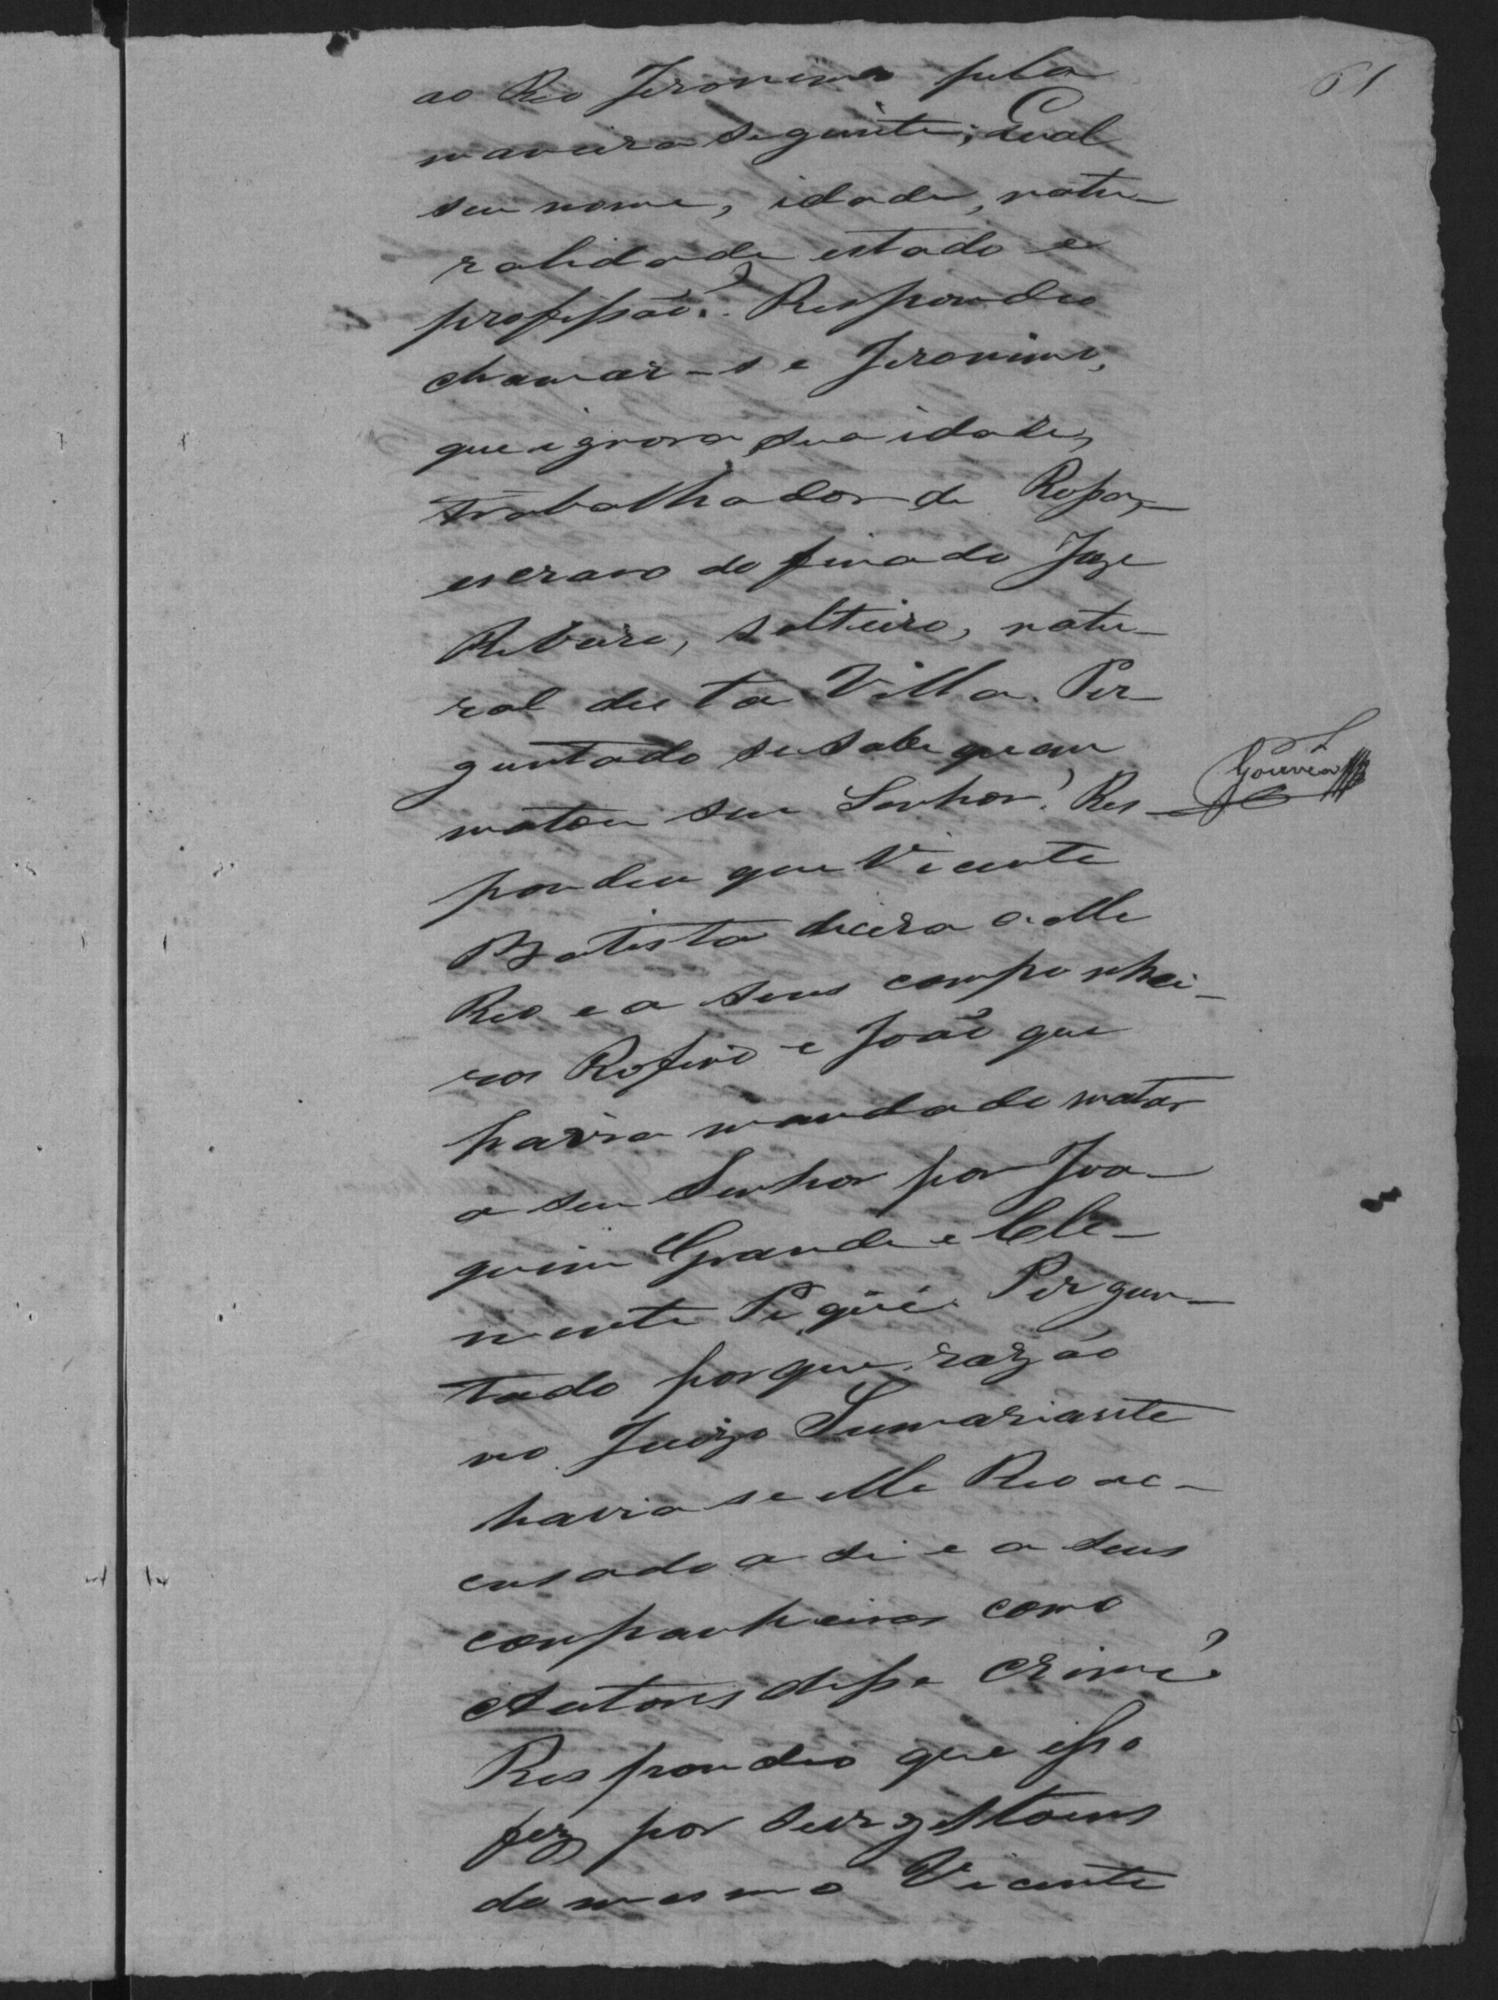 61
ao Reo Jeronimo pela
maneira seguinte; Qual
seu nome, idade, natu-
ralidade estado e
profissão? Respondeo
chamar-se Jeronimo,
que ignora sua idade,
trabalhador de Rossa,
escravo do finado Joze
Ribeiro, solteiro, natu-
ral desta Villa. Per-
guntado se sabe quem
matou seu Senhor? Res-
pondeu que Vicente
Batista dicera a elle
Reo e a seus companhei-
ros Rofino e João que
havia mandado matar
a seu Senhor por Joa-
quim Grande e Cle-
mente Pequi. Pergun-
tado por que razão
no Juizo Sumariante
havia se elle Reo ac-
cusado a si e a seus
companheiros como
Autores desse crime?
Respondeo que isso
fez por
do mesmo Vicente
Gouvêa